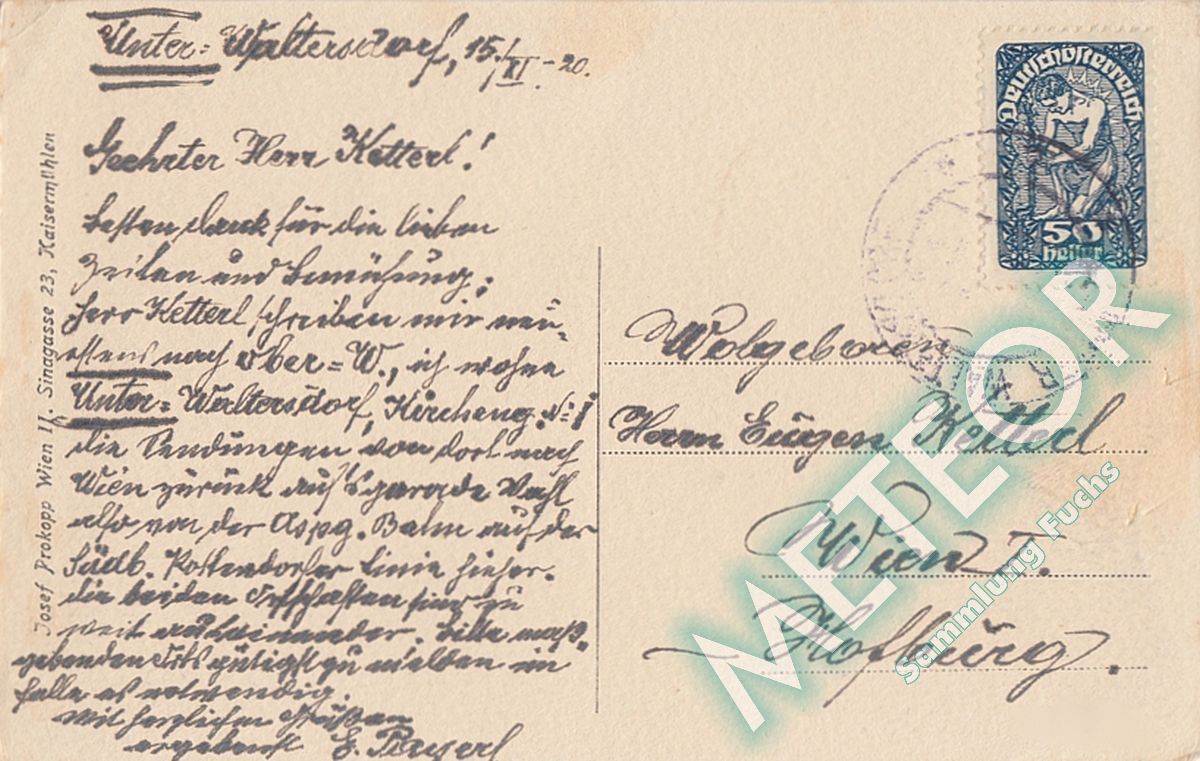 Unter=Waltersdorf, 15./XI.-20.
Geehrter Herr Ketterl!
besten Dank für die lieben
Zeilen und Bemühung;
Herr Ketterl schreiben mir neu-
estens nach Ober=W., ich wohne
Unter=Waltersdorf, Kircheng. No 1
die Sendungen von dort nach
Wien zurück auf's
also von der Aspg. Bahn auf der
Südb. Pottendorfer Linie hieher.
die beiden Ortschaften sind zu
weit auseinander. bitte maß-
gebenden Orts gütigst zu melden im
falle es notwendig.
mit herzlichen Grüßen
ergebenst E.
Josef Prokopp Wien II. Sinagasse 23, Kaisermühlen
Deutschösterreich
50
Heller
Wolgeboren
Herrn Eugen Ketterl
Wien I.
Hofburg.
METEOR
Sammlung Fuchs